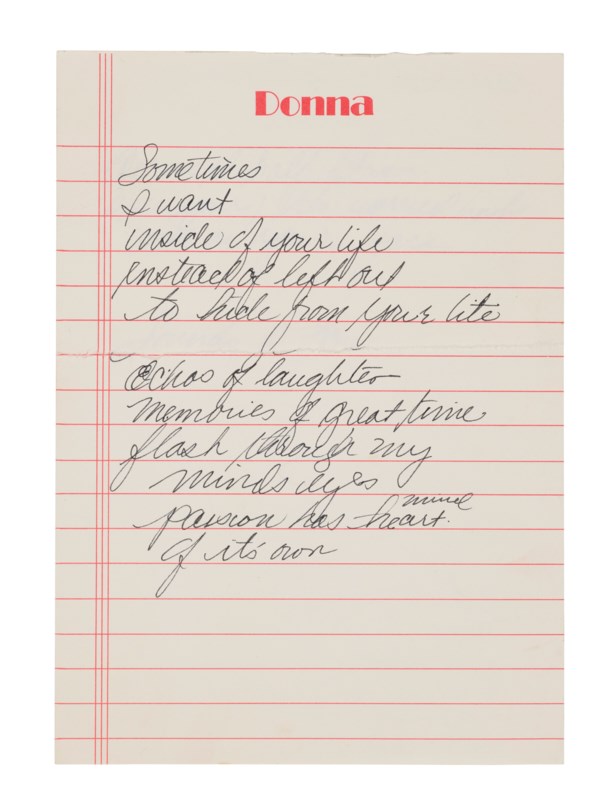 Donna
Sometimes
I want
inside of your life
instead of left out
to hide from your lite
echos of laughter
memories of great time
flash through my
minds eyes
mind
passion has heart.
of it's own